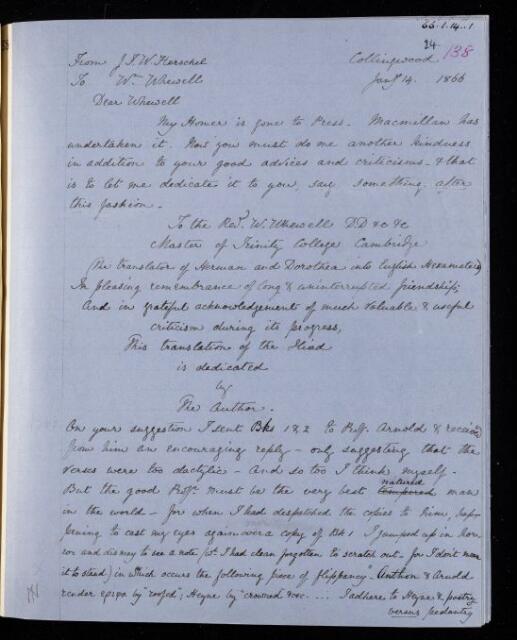 66.1.14.1
24 138
From J.F.W. Herschel Collingwood
To Wm Whewell Jany 14. 1866
Dear Whewell
My Homer is gone to Press. Macmillan has
undertaken it. Now you must do me another kindness
in addition to your good advices and criticisms - & that
is to let me dedicate it to you, say something after
this fashion.
To the Revd. W. Whewell DD &c &c
Master of Trinity College Cambridge
The translator of Herman and Dorothea into English Hexameters
In pleasing remembrance of long & uninterrupted friendship;
And in grateful acknowledgement of much valuable & useful
criticism during its progress,
This translation of the Iliad
is dedicated
by
The Author.
On your suggestion I sent Bks 1 & 2 to Proff. Arnold & received
from him an encouraging reply - only suggesting that the
verses were too dactylic - And so too I think myself.
But the good Proffr must be the very best tempered natured man
in the world - for when I had despatched the copies to him, hap-
pening to cast my eyes again over a copy of Bk 1 I jumped up in hor-
ror and dismay to see a note (wh. I had clean forgotten to scratch out - for I don't mean
it to stand) in which occurs the following piece of flippancy - Anthon & Arnold
render by "roofed"; Heyne by "crowned &c .... I adhere to Heyne & poetry
versus pedantry